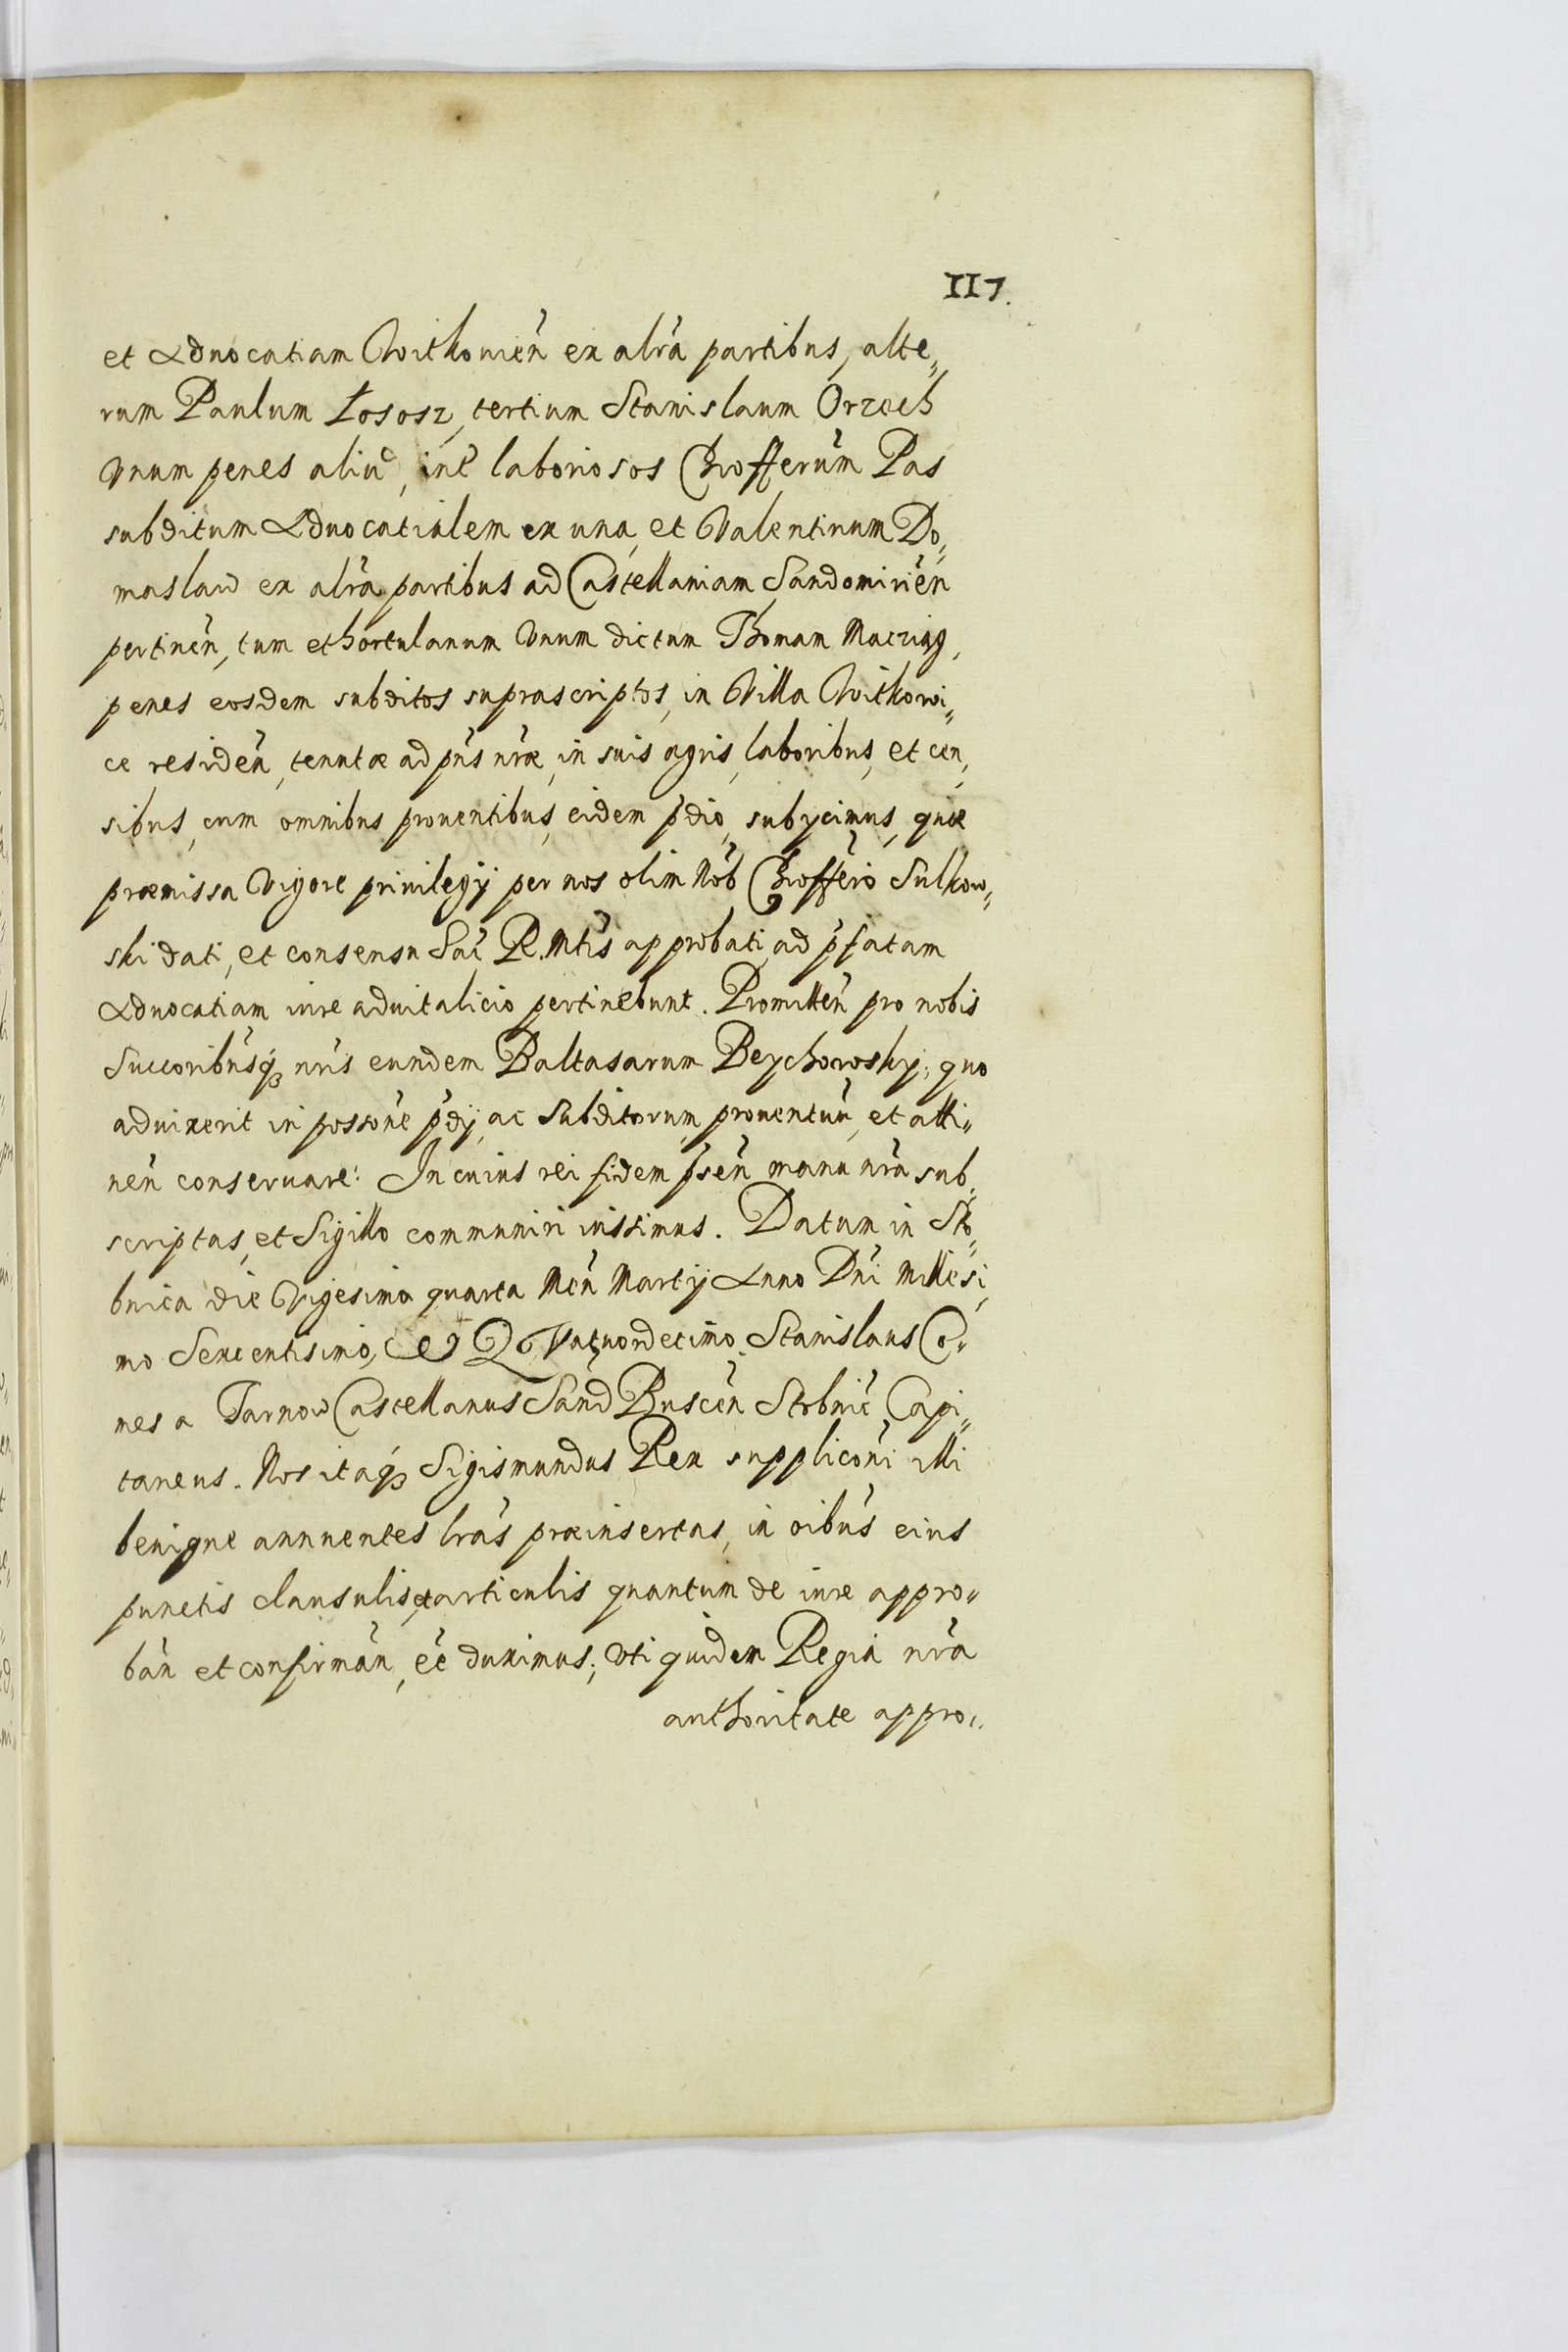 117.
et Aduocatiam Witkouien̄ ex alr̄a partibus, alte„
rum Paulum Łososz, tertium Stanislaum Orzech
Vnum penes aliud, int̄ laboriosos Chrofferūm Pas
subditum Aduocatialem ex una, et Valentinum Do„
maslaw ex alr̄a partibus ad Castellaniam Sandomirien̄
pertinen̄, tum et hortulanum Vnum dictum Thomam
penes eosdem subditos suprascriptos, in Villa Witkowi„
ce residen̄, tenutæ ad pn̄s nr̄æ, in suis agris, laboribus, et cen„
sibus, cum omnibus prouentibus, eidem p̄dio, subycimus, quæ
præmissa Vigore priuilegij per nos olim Nob̄ Chrofferō Sulkow„
ski dati, et consensu Sac̄ R. Mtīs approbati, ad p̄fatam
Aduocatiam iure aduitalicio pertinebunt. Promitten̄ pro nobis
Succoribūsq; nr̄is eundem Baltasarum Beychorosky, quo
aduixerit in possōne p̄dij, ac Subditorum, prouentuū, et atti„
nen̄ conseruare: In cuius rei fidem p̄sen̄ manu nr̄a sub„
scriptas, et Sigillo communiri iussimus. Datum in Sto„
bnica die Vigesima quarta Men̄ Martij Anno Dn̄i Millesi„
mo Sexcentisimo, et QVatuordecimo. Stanislaus Co„
mes a Tarnow Castellanus San̄d Buscen̄ Stobnic̄ Capi„
taneus. Nos itaq; Sigismundus Rex supplicōni illi
benigne annuentes lr̄as præinsertas, in oībus eius
punctis clausulis, et articulis quantum de iure appro„
ban̄ et confirman̄, eē duximus; Vti quidem Regia nr̄a
authoritate appro„